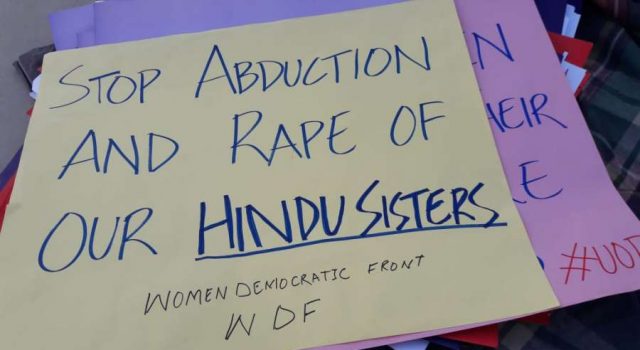 STOP ABDUCTION
AND RAPE OF
OUR HINDU SISTERS
WOMEN DEMOCRATIC FRONT
WDF
EN
HEIR
#UOD